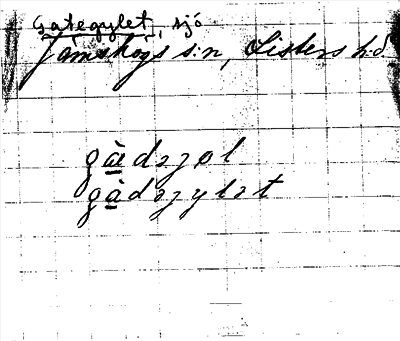 Gategylet, sjö
Jämshögs s:n, Listers h:d.
gà̱dəɡøl
gà̱dəɡylət